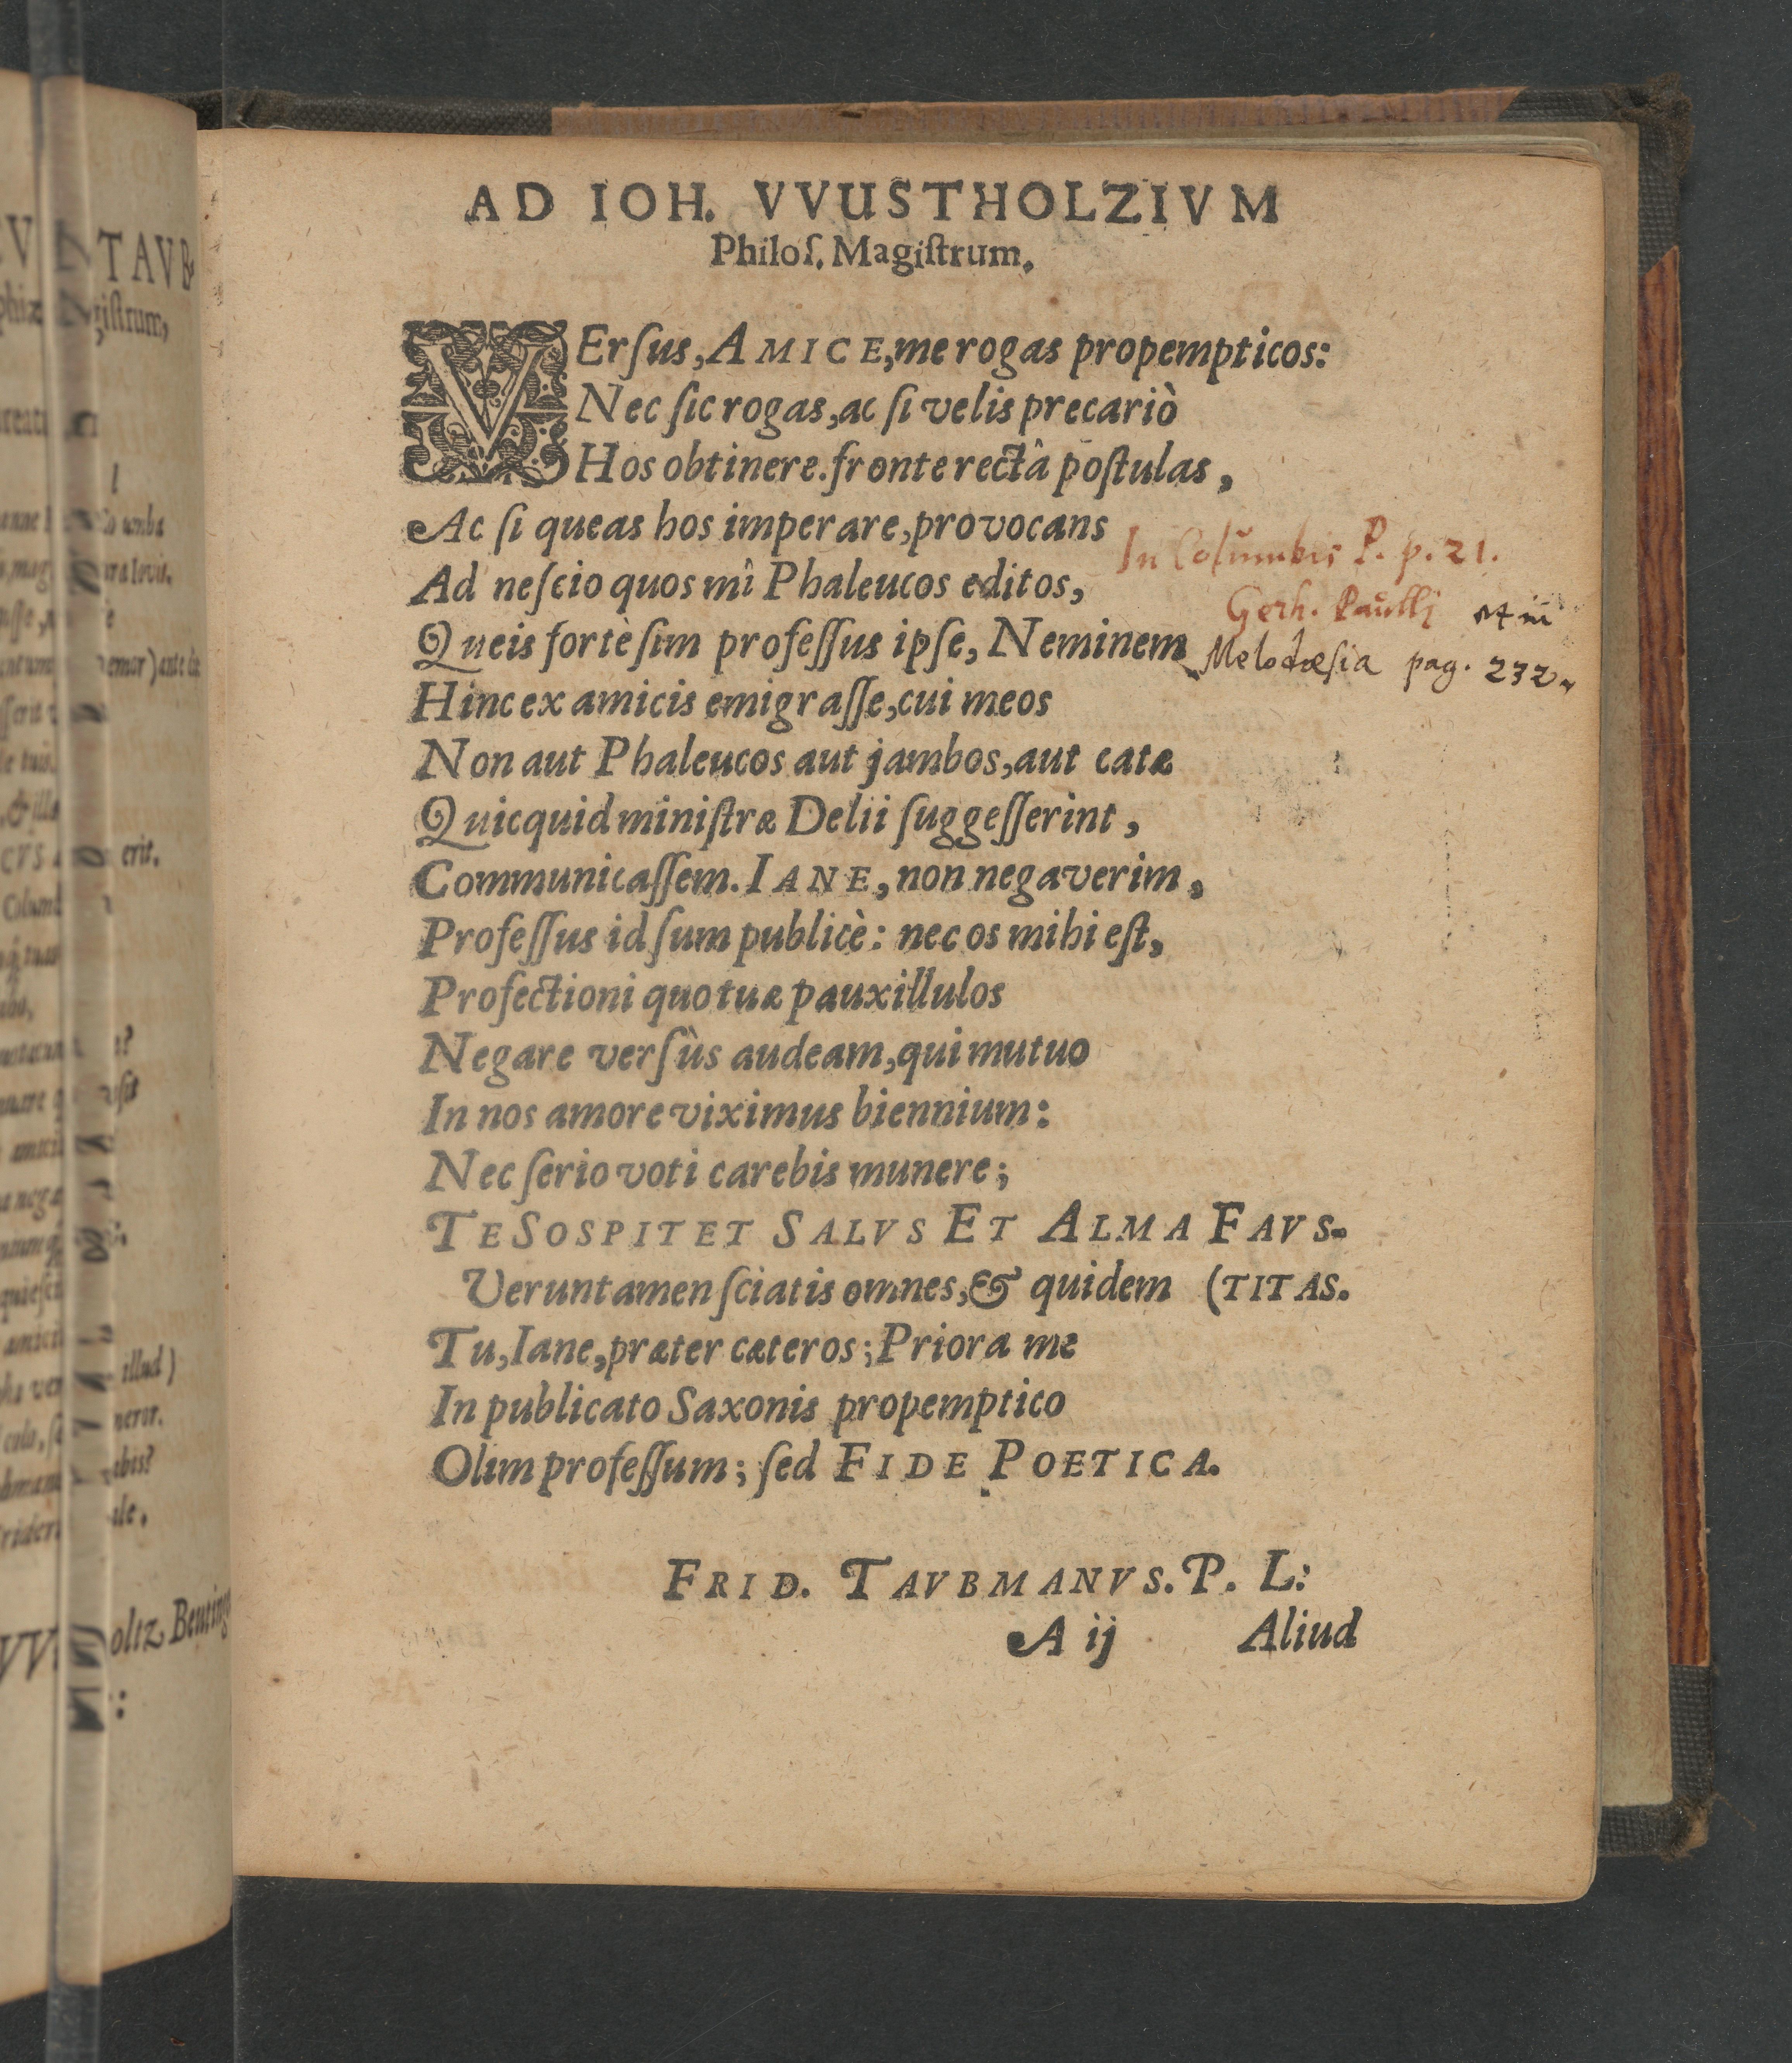 AD IOH. VVUSTHOLZIVM
Philoſ. Magiſtrum.
VErſus, AMICE, me rogas propempticos:
Nec ſic rogas, ac ſi velis precariò
Hos obtinere. fronte rectâ poſtulas,
Ac ſi queas hos imperare, provocans
In Columbis P. p. 21.
Ad neſcio quos mî Phaleucos editos,
Gerh. Paulli et in
Queis fortè ſim profeſſus ipſe, Neminem
Melodæſia pag. 232.
Hinc ex amicis emigraſſe, cui meos
Non aut Phaleucos aut jambos, aut catæ
Quicquid miniſtræ Delii ſuggeſſerint,
Communicaſſem. IANE, non negaverim,
Profeſſus id ſum publicè: nec os mihi eſt,
Profectioni quo tuæ pauxillulos
Negare verſùs audeam, qui mutuo
In nos amore viximus biennium:
Nec ſerio voti carebis munere;
TE SOSPITET SALVS ET ALMA FAVS-
Veruntamen ſciatis omnes, & quidem (TITAS.
Tu, Iane, præter cæteros; Priora me
In publicato Saxonis propemptico
Olim profeſſum; ſed FIDE POETICA.
FRID. TAVBMANVS. P. L:
A ij Aliud